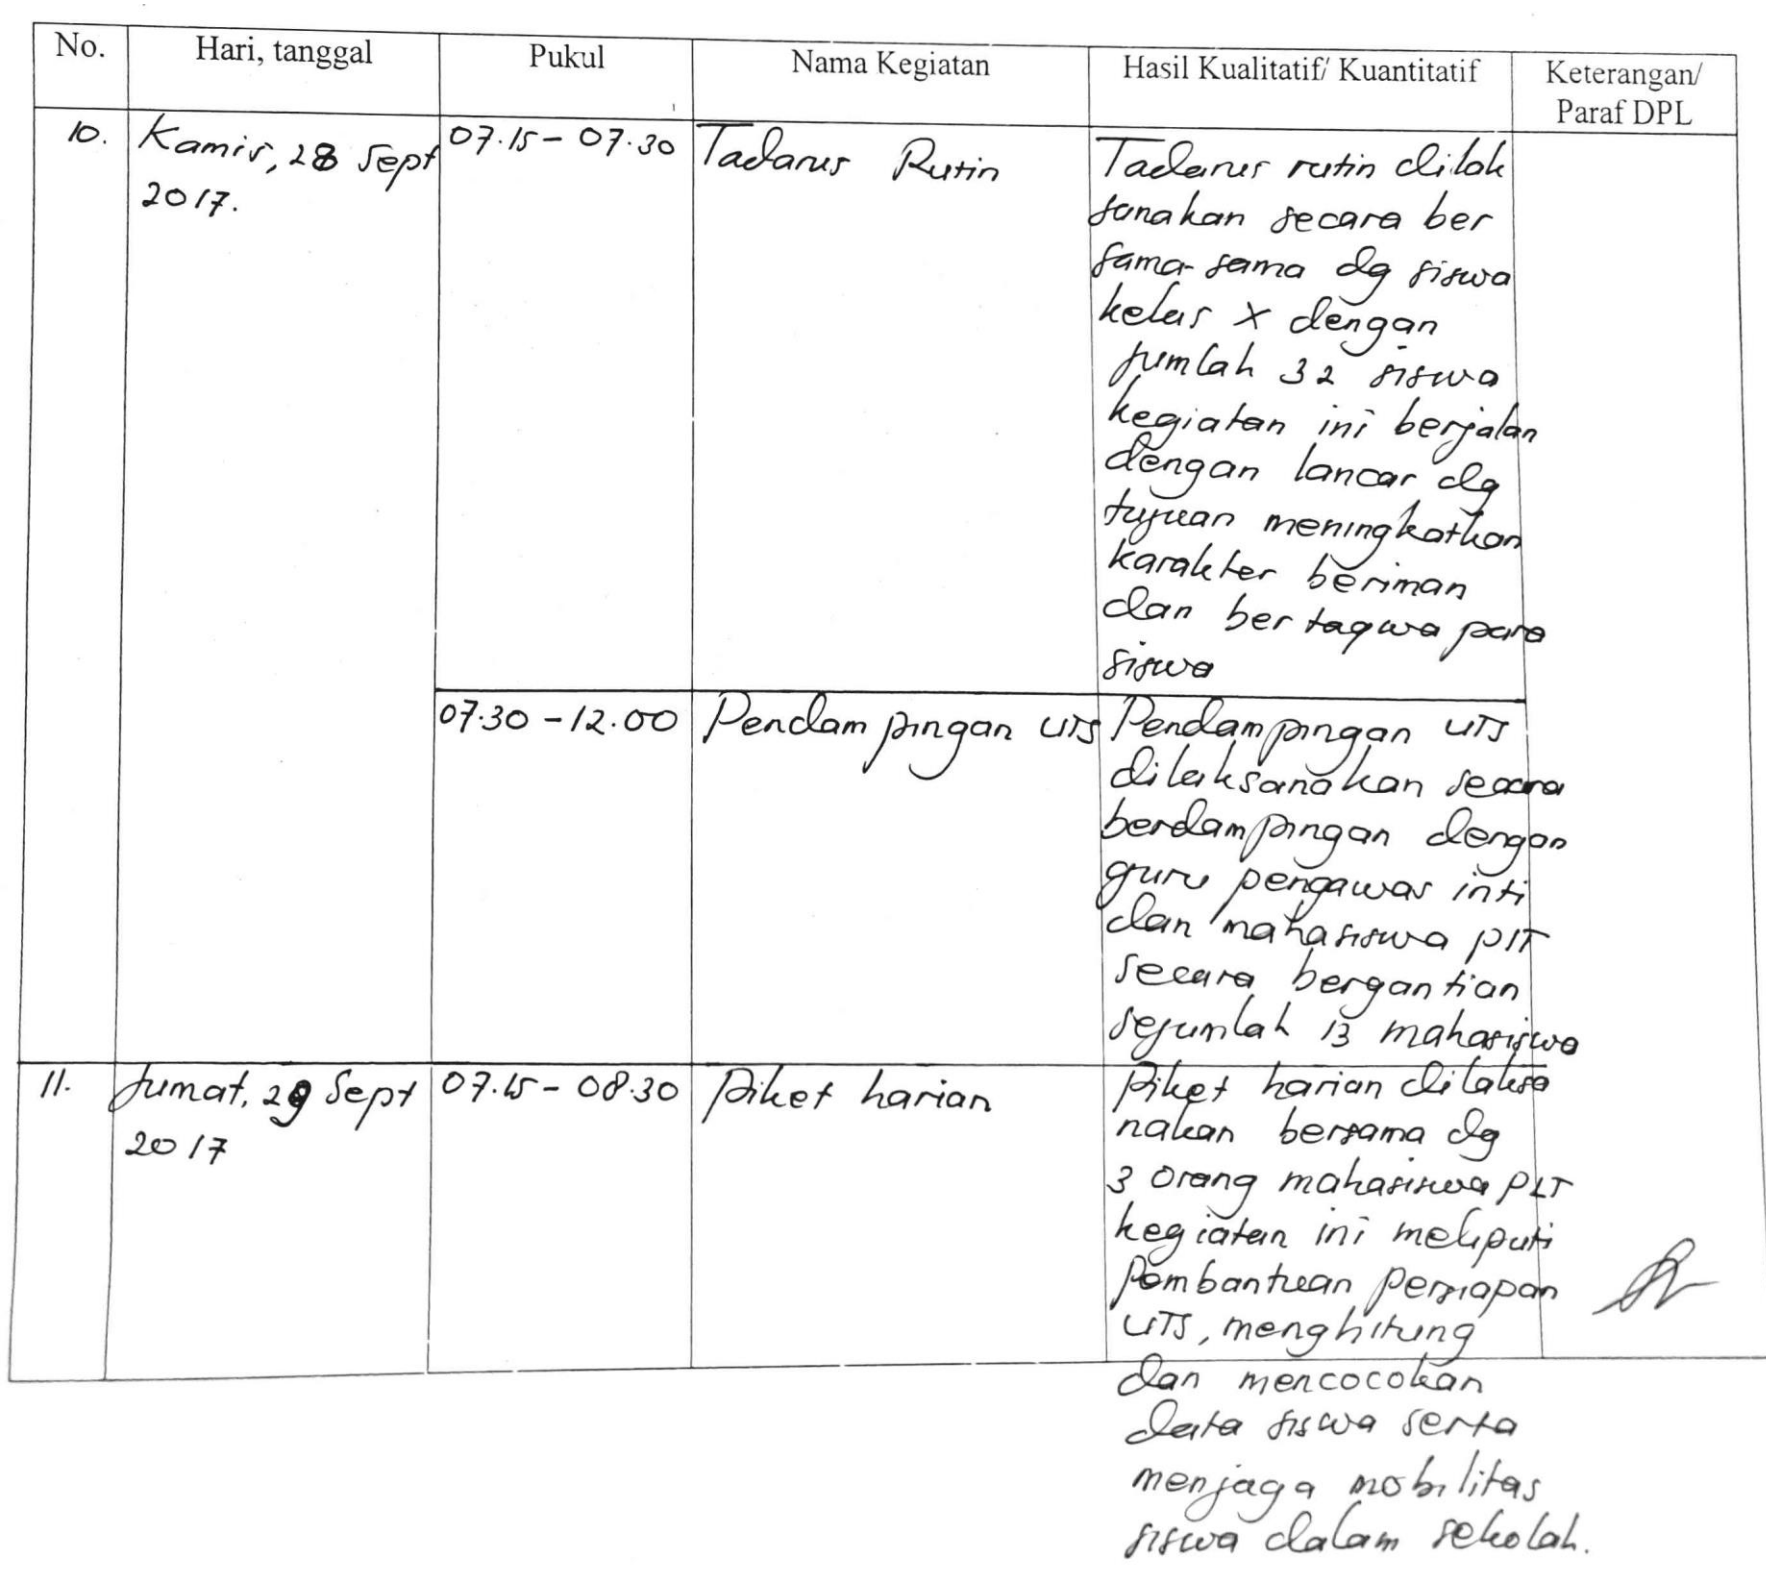 No. Hari, tanggal Pukul Nama Kegiatan Hasil Kualitatif/ Kuantitatif Keterangan/
Paraf DPL
10. Kamis, 28 Sept 07.15 - 07.30 Tadarus Rutin Tadarus rutin dilak
2017. sanakan secara ber
sama-sama dg siswa
kelas X dengan
jumlah 32 siswa
kegiatan ini berjalan
dengan lancar dg
tujuan meningkatkan
karakter beriman
dan bertaqwa para
siswa
07.30 - 12.00 Pendampingan UTS Pendampingan UTS
dilaksanakan secara
berdampingan dengan
guru pengawas inti
dan mahasiswa PLT
secara bergantian
sejumlah 13 mahasiswa
11. Jumat, 29 Sept 07.15 - 08.30 Piket harian Piket harian dilaksa
2017 nakan bersama dg
3 orang mahasiswa PLT
kegiatan ini meliputi
Pembantuan persiapan
UTS, menghitung
dan mencocokan
data siswa serta
menjaga mobilitas
siswa dalam sekolah.